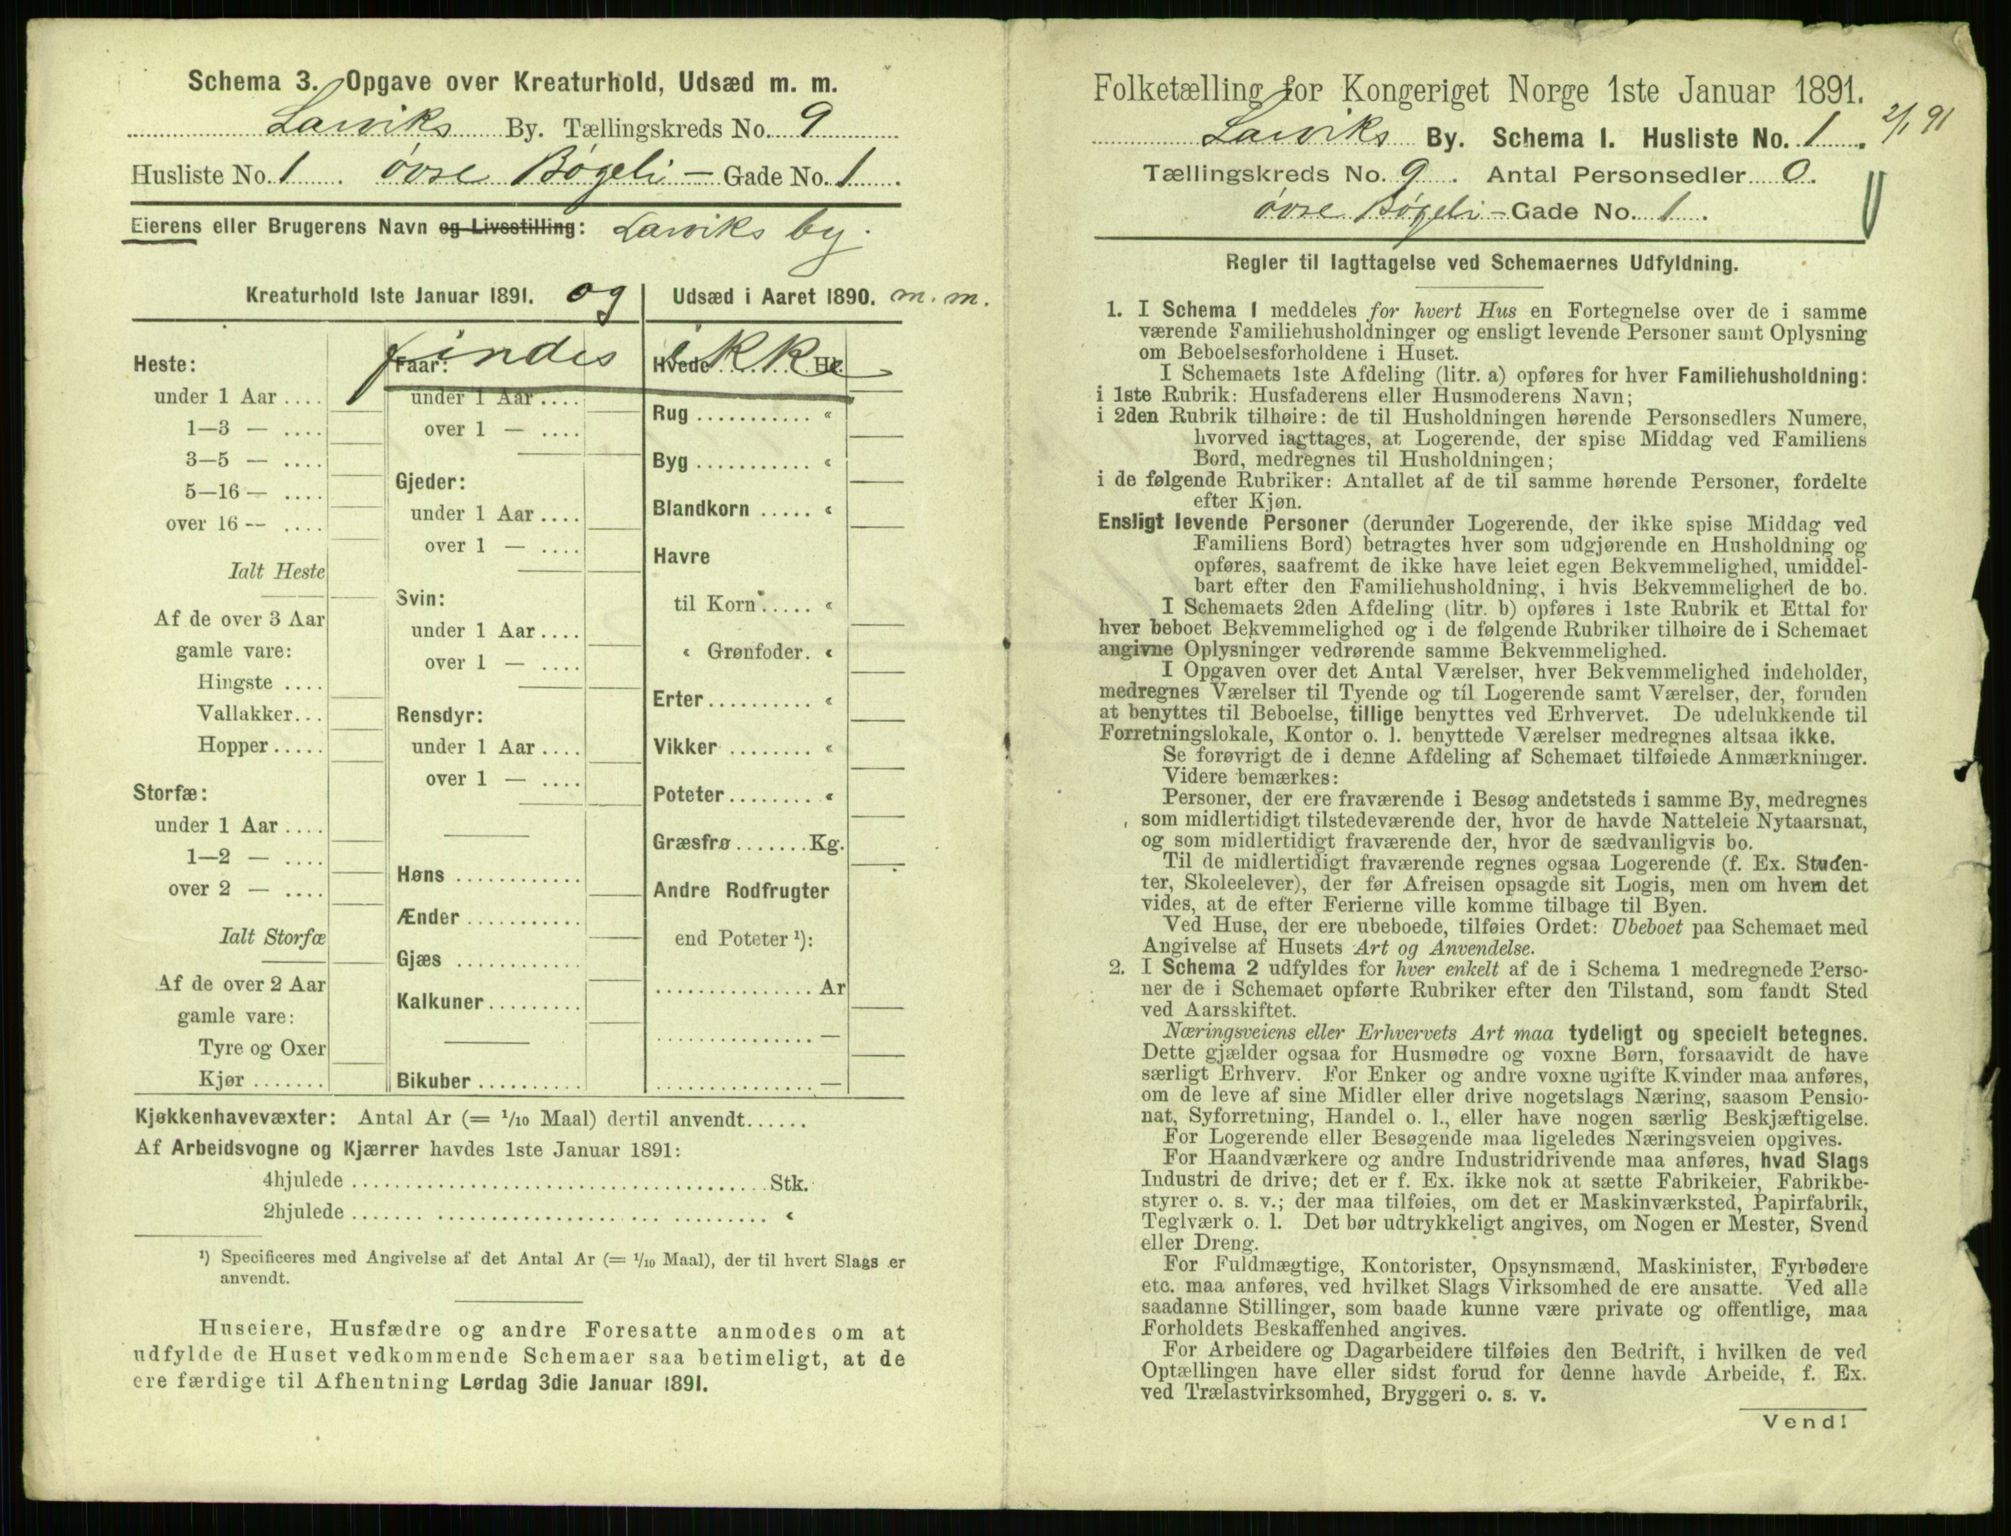 Schema 3. Opgave over Kreaturhold, Udsæd m. m.
Larviks By. Tællingskreds No. 9
Husliste No. 1. Øvre Bøgeli – Gade No. 1.
Eierens eller Brugerens Navn og Livsstilling: Larviks by.
Kreaturhold 1ste Januar 1891. og Udsæd i Aaret 1890. m. m.
findes ikke
Heste:
under 1 Aar ....
1—3 — ....
3—5 — ....
5—16 — ....
over 16 — ....
Ialt Heste
Af de over 3 Aar
gamle vare:
Hingste ....
Vallakker...
Hopper.....
Storfæ:
under 1 Aar ....
1—2 — ....
over 2 — ....
Ialt Storfæ
Af de over 2 Aar
gamle vare:
Tyre og Oxer
Kjør .......
Faar:
under 1 Aar....
over 1 — ....
Gjeder:
under 1 Aar....
over 1 — ....
Svin:
under 1 Aar....
over 1 — ....
Rensdyr:
under 1 Aar....
over 1 — ....
Høns ............
Ænder ...........
Gjæs ............
Kalkuner.........
Bikuber ..........
Hvede ........ Hl.
Rug ........... «
Byg ........... «
Blandkorn ..... «
Havre
til Korn ..... «
« Grønfoder. «
Erter.......... «
Vikker ........ «
Poteter........ «
Græsfrø.......Kg.
Andre Rodfrugter
end Poteter ¹):
............... Ar
............... —
............... —
Kjøkkenhavevæxter: Antal Ar (= 1/10 Maal) dertil anvendt......
Af Arbeidsvogne og Kjærrer havdes 1ste Januar 1891:
4hjulede ..................................... Stk.
2hjulede ..................................... «
¹) Specificeres med Angivelse af det Antal Ar (= 1/10 Maal), der til hvert Slags er
anvendt.
Huseiere, Husfædre og andre Foresatte anmodes om at
udfylde de Huset vedkommende Schemaer saa betimeligt, at de
ere færdige til Afhentning Lørdag 3die Januar 1891.
Folketælling for Kongeriget Norge 1ste Januar 1891.
2/1 91
Larviks By. Schema I. Husliste No. 1.
Tællingskreds No. 9. Antal Personsedler 0.
Øvre Bøgeli – Gade No. 1.
Regler til Iagttagelse ved Schemaernes Udfyldning.
1. I Schema I meddeles for hvert Hus en Fortegnelse over de i samme
værende Familiehusholdninger og ensligt levende Personer samt Oplysning
om Beboelsesforholdene i Huset.
I Schemaets 1ste Afdeling (litr. a) opføres for hver Familiehusholdning:
i 1ste Rubrik: Husfaderens eller Husmoderens Navn;
i 2den Rubrik tilhøire: de til Husholdningen hørende Personsedlers Numere,
hvorved iagttages, at Logerende, der spise Middag ved Familiens
Bord, medregnes til Husholdningen;
i de følgende Rubriker: Antallet af de til samme hørende Personer, fordelte
efter Kjøn.
Ensligt levende Personer (derunder Logerende, der ikke spise Middag ved
Familiens Bord) betragtes hver som udgjørende en Husholdning og
opføres, saafremt de ikke have leiet egen Bekvemmelighed, umiddel-
bart efter den Familiehusholdning, i hvis Bekvemmelighed de bo.
I Schemaets 2den Afdeling (litr. b) opføres i 1ste Rubrik et Ettal for
hver beboet Bekvemmelighed og i de følgende Rubriker tilhøire de i Schemaet
angivne Oplysninger vedrørende samme Bekvemmelighed.
I Opgaven over det Antal Værelser, hver Bekvemmelighed indeholder,
medregnes Værelser til Tyende og til Logerende samt Værelser, der, foruden
at benyttes til Beboelse, tillige benyttes ved Erhvervet. De udelukkende til
Forretningslokale, Kontor o. l. benyttede Værelser medregnes altsaa ikke.
Se forøvrigt de i denne Afdeling af Schemaet tilføiede Anmærkninger.
Videre bemærkes:
Personer, der ere fraværende i Besøg andetsteds i samme By, medregnes
som midlertidigt tilstedeværende der, hvor de havde Natteleie Nytaarsnat,
og som midlertidigt fraværende der, hvor de sædvanligvis bo.
Til de midlertidigt fraværende regnes ogsaa Logerende (f. Ex. Studen-
ter, Skoleelever), der før Afreisen opsagde sit Logis, men om hvem det
vides, at de efter Ferierne ville komme tilbage til Byen.
Ved Huse, der ere ubeboede, tilføies Ordet: Ubeboet paa Schemaet med
Angivelse af Husets Art og Anvendelse.
2. I Schema 2 udfyldes for hver enkelt af de i Schema 1 medregnede Perso-
ner de i Schemaet opførte Rubriker efter den Tilstand, som fandt Sted
ved Aarsskiftet.
Næringsveiens eller Erhvervets Art maa tydeligt og specielt betegnes.
Dette gjælder ogsaa for Husmødre og voxne Børn, forsaavidt de have
særligt Erhverv. For Enker og andre voxne ugifte Kvinder maa anføres,
om de leve af sine Midler eller drive nogetslags Næring, saasom Pensio-
nat, Syforretning, Handel o. l., eller have nogen særlig Beskjæftigelse.
For Logerende eller Besøgende maa ligeledes Næringsveien opgives.
For Haandværkere og andre Industridrivende maa anføres, hvad Slags
Industri de drive; det er f. Ex. ikke nok at sætte Fabrikeier, Fabrikbe-
styrer o. s. v.; der maa tilføies, om det er Maskinværksted, Papirfabrik,
Teglværk o. l. Det bør udtrykkeligt angives, om Nogen er Mester, Svend
eller Dreng.
For Fuldmægtige, Kontorister, Opsynsmænd, Maskinister, Fyrbødere
etc. maa anføres, ved hvilket Slags Virksomhed de ere ansatte. Ved alle
saadanne Stillinger, som baade kunne være private og offentlige, maa
Forholdets Beskaffenhed angives.
For Arbeidere og Dagarbeidere tilføies den Bedrift, i hvilken de ved
Optællingen have eller sidst forud for denne havde Arbeide, f. Ex.
ved Trælastvirksomhed, Bryggeri o. s. v.
Vend!